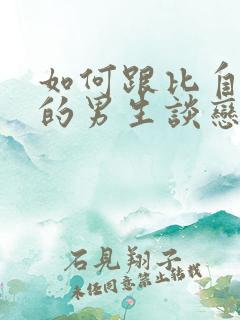 如何跟比自
的男生談戀
石見翔子
未经同意禁止转载